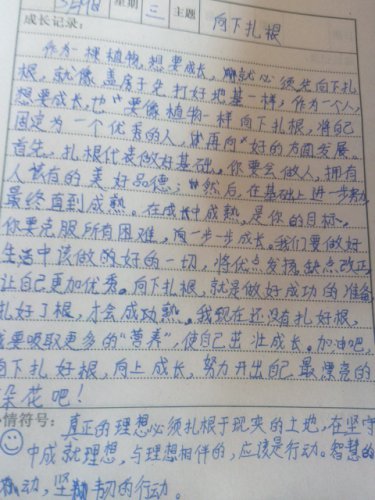 星期 三 主题 向下扎根
成长记录:
作为一棵植物,想要成长,就必须先向下扎
根,就像盖房子要打好地基一样,作为一个人,
想要成长,也要像植物一样向下扎根,将自己
固定为一个优秀的人,再向好的方面发展。
首先,扎根代表做好基础。你要会做人,拥有
人 有的美好品德;然后,在基础上进一步努力
最终直到成熟。在成长中成熟,是你的目标。
你要克服所有困难,向一步一步成长。我们要做好
生活中该做的好的一切,将优点发扬,缺点改正,
让自己更加优秀。向下扎根,就是做好成功的准备,
扎好了根,才会成功 。我现在还没有扎好根,
我要吸取更多的“营养”,使自己茁壮成长。加油吧,
向下扎好根,向上成长,努力开出自己最漂亮的
朵花吧!
情符号: 真正的理想必须扎根于现实的土地,在坚守
中成就理想,与理想相伴的,应该是行动。智慧的
行动,坚韧的行动。